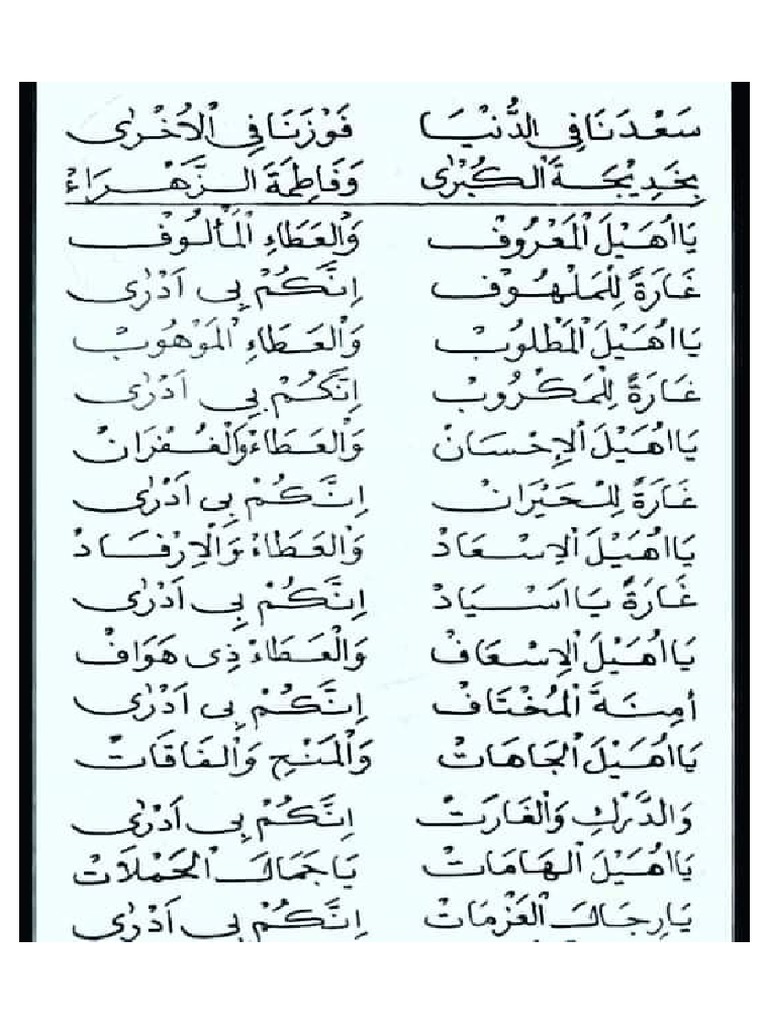 سَعْدَنَا فِي الدُّنْيَا فَوْزَنَا فِي الْاُخْرٰى
بِخَدِيْجَةَ الْكُبْرٰى وَفَاطِمَةَ الزَّهْرَاءْ
يَا اُهَيْلَ الْمَعْرُوْفْ وَالْعَطَاءِ الْمَأْلُوْفْ
غَارَةً لِلْمَلْهُوْفْ اِنَّكُمْ بِى اَدْرٰى
يَا اُهَيْلَ الْمَطْلُوْبْ وَالْعَطَاءِ الْمَوْهُوْبْ
غَارَةً لِلْمَكْرُوْبْ اِنَّكُمْ بِى اَدْرٰى
يَا اُهَيْلَ الْاِحْسَانْ وَالْعَطَاءْ وَالْغُفْرَانْ
غَارَةً لِلْحَيْرَانْ اِنَّكُمْ بِى اَدْرٰى
يَا اُهَيْلَ الْاِسْعَادْ وَالْعَطَاءْ وَالْاِرْفَادْ
غَارَةً يَا اَسْيَادْ اِنَّكُمْ بِى اَدْرٰى
يَا اُهَيْلَ الْاِسْعَافْ وَالْعَطَاءْ ذِى هَوَافْ
أَمِنَةَ الْمُخْتَافْ اِنَّكُمْ بِى اَدْرٰى
يَا اُهَيْلَ الْجَاهَاتْ وَالْمَنْحِ وَالْفَاقَاتْ
وَالدَّرْكِ وَالْغَارَتْ اِنَّكُمْ بِى اَدْرٰى
يَا اُهَيْلَ الْهَامَاتْ يَا جَمَالَ الْحَمْلَاتْ
يَا رِجَالَ الْعَزْمَاتْ اِنَّكُمْ بِى اَدْرٰى